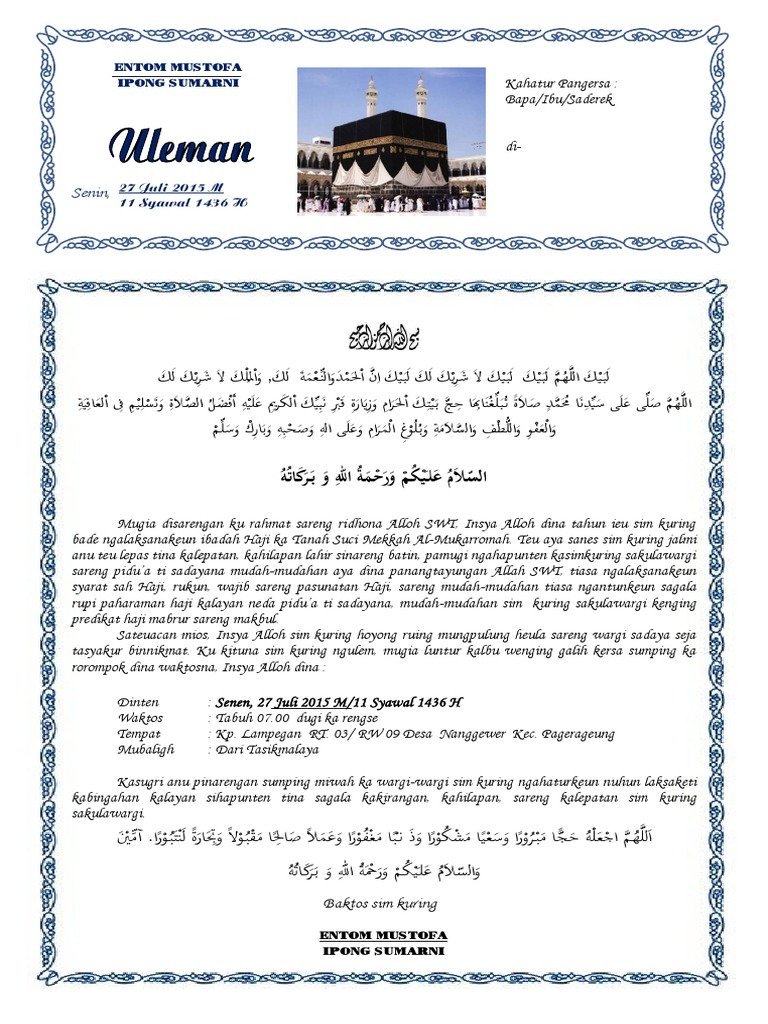 ENTOM MUSTOFA
IPONG SUMARNI
Uleman
Senin, 27 Juli 2015 M
11 Syawal 1436 H
Kahatur Pangersa :
Bapa/Ibu/Saderek
di-
بسم الله الرحمن الرحيم
لَبَيْكَ اللَّهُمَّ لَبَيْكَ لَبَيْكَ لاَ شَرِيْكَ لَكَ لَبَيْكَ اِنَّ اْلحَمْدَوَالنِّعْمَةَ لَكَ, وَاْلمُلْكَ لاَ شَرِيْكَ لَكَ
اللَّهُمَّ صَلِّى عَلَى سَيِّدِنَا مُحَمَّدٍ صَلاَةً تُبَلِّغُنَابِهَا حِجَّ بَيْتِكَ الْحَرَامِ وَزِيَارَةِ قَبْرِ نَبِيِّكَ اْلكَرِيمِ عَلَيْهِ أَفْضَلُ الصَّلاَةِ وَتَسْلِيْمِ فِى اْلعَافِيَةِ
وَاْلعَفْوِ وَاللُّطْفِ وَالسَّلاَمَةِ وَبُلُوْغِ الْمَرَامِ وَعَلَى الهِ وَصَحْبِهِ وَبَارِكْ وَسَلِّمْ
السّلاَمُ عَلَيْكُمْ وَرَحْمَةُ اللهِ وَ بَرَكَاتُهُ
Mugia disarengan ku rahmat sareng ridhona Alloh SWT. Insya Alloh dina tahun ieu sim kuring
bade ngalaksanakeun ibadah Haji ka Tanah Suci Mekkah Al-Mukarromah. Teu aya sanes sim kuring jalmi
anu teu lepas tina kalepatan, kahilapan lahir sinareng batin, pamugi ngahapunten kasimkuring sakulawargi
sareng pidu'a ti sadayana mudah-mudahan aya dina panangtayungan Allah SWT, tiasa ngalaksanakeun
syarat sah Haji, rukun, wajib sareng pasunatan Haji, sareng mudah-mudahan tiasa ngantunkeun sagala
rupi paharaman haji kalayan neda pidu'a ti sadayana, mudah-mudahan sim kuring sakulawargi kenging
predikat haji mabrur sareng makbul.
Sateuacan mios, Insya Alloh sim kuring hoyong ruing mungpulung heula sareng wargi sadaya seja
tasyakur binnikmat. Ku kituna sim kuring ngulem, mugia luntur kalbu wenging galih kersa sumping ka
rorompok dina waktosna, Insya Alloh dina :
Dinten : Senen, 27 Juli 2015 M/11 Syawal 1436 H
Waktos : Tabuh 07.00 dugi ka rengse
Tempat : Kp. Lampegan RT. 03/ RW 09 Desa Nanggewer Kec. Pagerageung
Mubaligh : Dari Tasikmalaya
Kasugri anu pinarengan sumping miwah ka wargi-wargi sim kuring ngahaturkeun nuhun laksaketi
kabingahan kalayan sihapunten tina sagala kakirangan, kahilapan, sareng kalepatan sim kuring
sakulawargi.
اَللَّهُمَّ اجْعَلْهُ حَجًّا مَبْرُورًا وَسَعْيًا مَشْكُورًا وَذَ نْبًا مَغْفُورًا وَعَمَلاً صَالِحًا مَقْبُوْلاً وَتِجَارَةً لَنْتَبُورًا. آمِّيْنَ
وَالسّلاَمُ عَلَيْكُمْ وَرَحْمَةُ اللهِ وَ بَرَكَاتُهُ
Baktos sim kuring
ENTOM MUSTOFA
IPONG SUMARNI